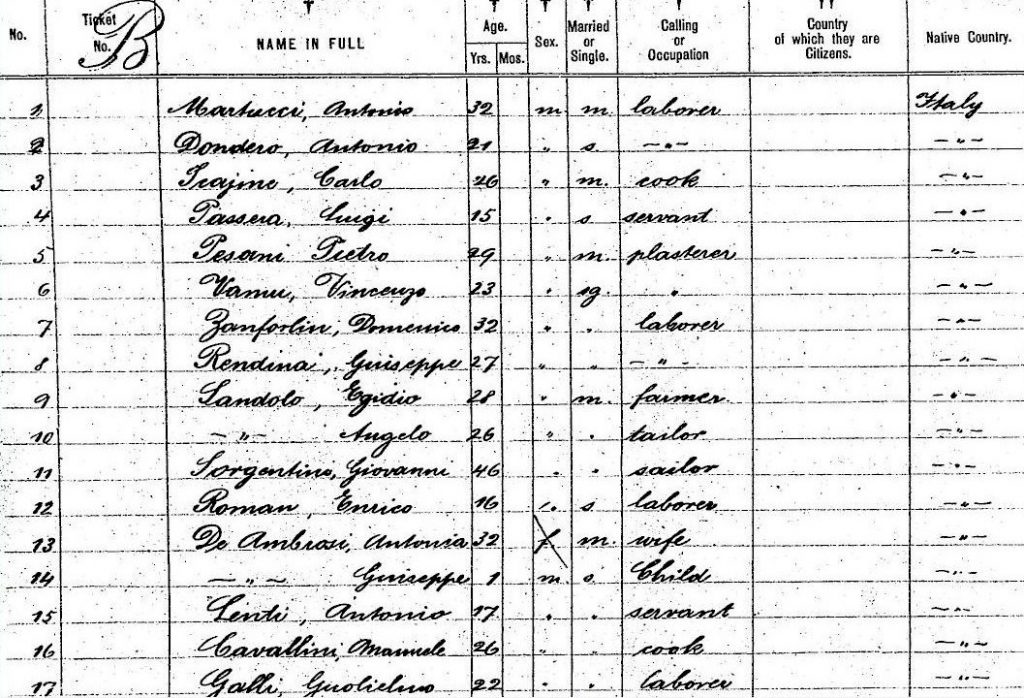 No. Ticket No. B NAME IN FULL Age. Yrs. Mos. Sex. Married or Single. Calling or Occupation Country of which they are Citizens. Native Country.
1 Martucci, Antonio 32 m m laborer Italy
2 Dondero, Antonio 21 " s —"— —"—
3 Carlo 26 " m. cook —"—
4 Passera, Luigi 15 " s servant —"—
5 Pesani Pietro 29 " m. plasterer —"—
6 Vincenzo 23 " sg. " —"—
7 Zanforlin, Domenico 32 " " laborer —"—
8 Rendina, Guiseppe 27 " " —"— —"—
9 Landolo, Egidio 28 " m. farmer —"—
10 —"— Angelo 26 " " tailor —"—
11 Sorgentino, Giovanni 46 " " sailor —"—
12 Roman, Enrico 16 " s laborer —"—
13 De Ambrosi, Antonia 32 f m. wife —"—
14 —"— Guiseppe 1 m s Child —"—
15 Lenti, Antonio 17 " " servant —"—
16 Cavallini, Manuele 26 " " cook —"—
17 Galli, Guolielmo 22 " " laborer —"—